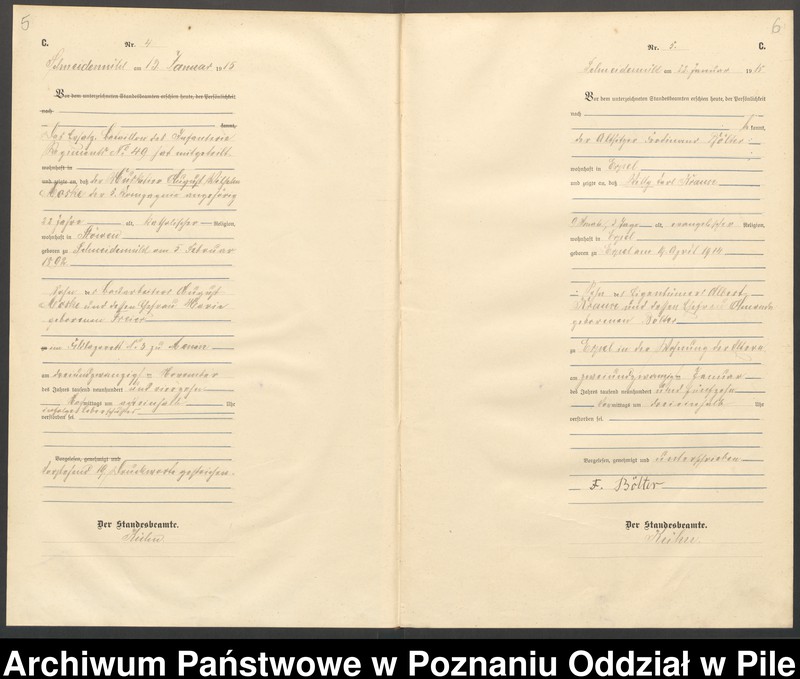 5
C.
Nr. 4
Schneidemühl am 13 Januar 1915
Vor dem unterzeichneten Standesbeamten erschien heute, der Persönlichkeit
nach
kannt,
Das Ersatz Bataillon des Infanterie
Regiments No 49 hat mitgeteilt
wohnhaft in
und zeigte an, daß der Musketier August Wilhelm
der 2. Kompagnie angehörig
22 Jahre alt, katholischer Religion,
wohnhaft in
geboren zu Schneidemühl am 5 Februar
1892
Sohn des August
und dessen Ehefrau Maria
geborenen Freier
im Feldlazarett No 3 zu
am November
des Jahres tausend neunhundert und vierzehn
mittags um Uhr
verstorben sei.
Vorgelesen, genehmigt und
Vorstehend 19 Druckworte gestrichen.
Der Standesbeamte.
6
Nr. 5.
C.
Schneidemühl am 22 Januar 1915
Vor dem unterzeichneten Standesbeamten erschien heute, der Persönlichkeit
nach
kannt,
der Altsitzer Ferdinand Bölter
wohnhaft in Erpel
und zeigte an, daß Willy Karl Krause
9 Monate, 3 Tage alt, evangelischer Religion,
wohnhaft in Erpel
geboren zu Erpel am 19 April 1914
Sohn des Eigentümers Albert
Krause und dessen Ehefrau
geborenen Bölter
zu Erpel in der Wohnung der Eltern
am zweiundzwanzigsten Januar
des Jahres tausend neunhundert und fünfzehn
Vormittags um Uhr
verstorben sei.
Vorgelesen, genehmigt und unterschrieben
F. Bölter
Der Standesbeamte.
Archiwum Państwowe w Poznaniu Oddział w Pile